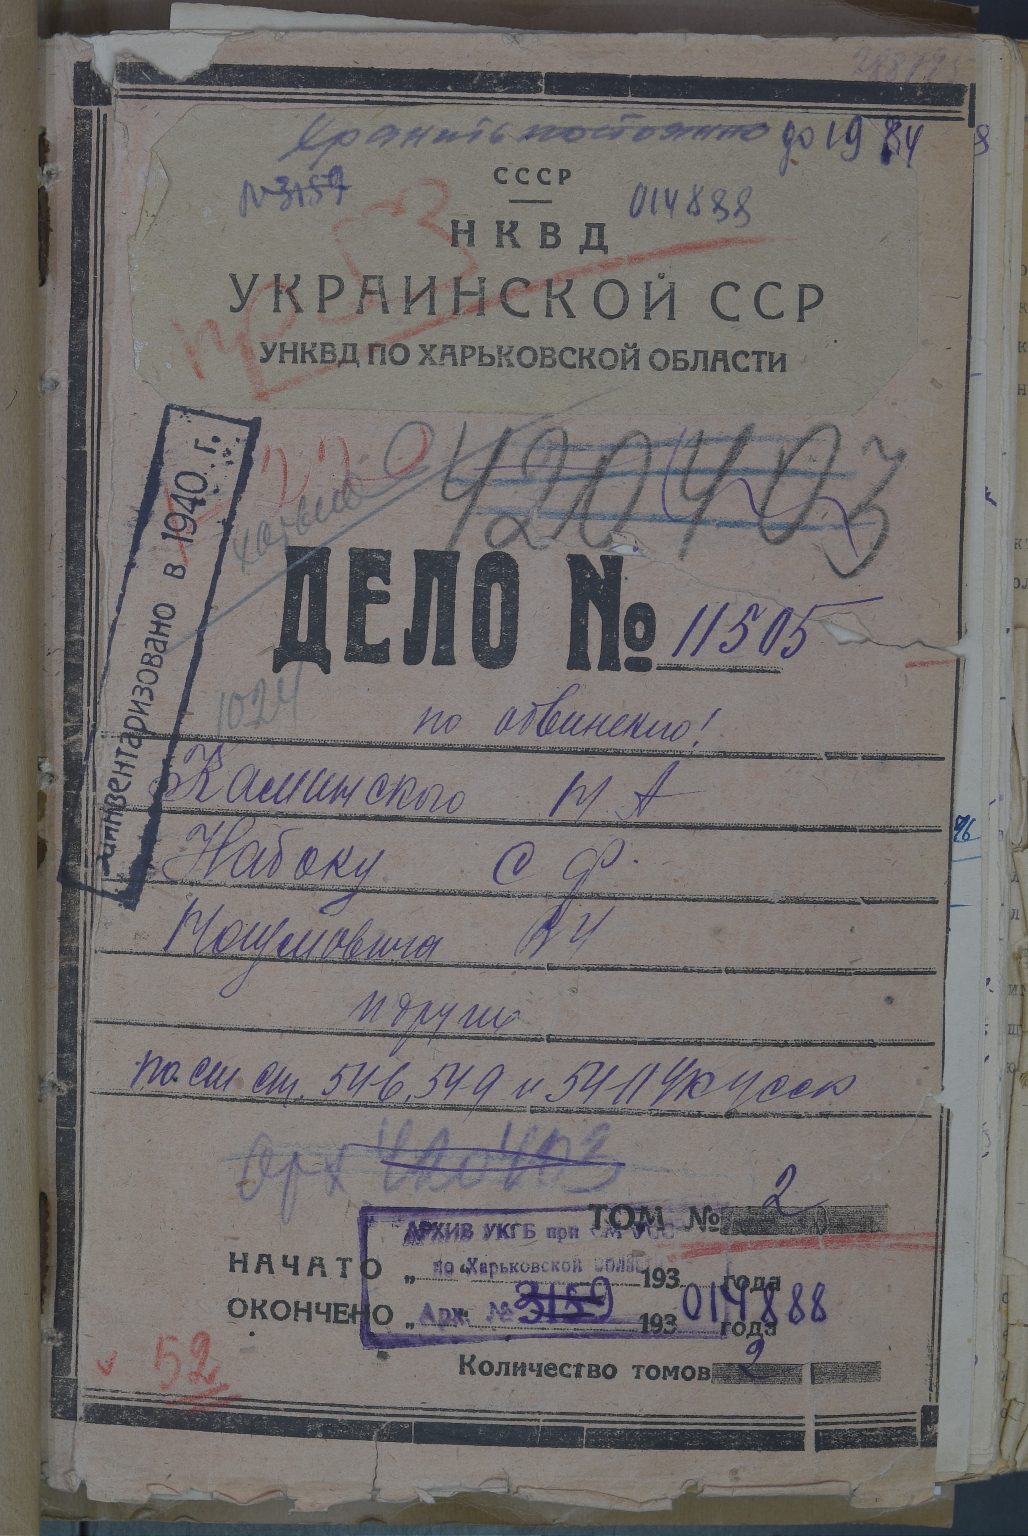 Хранить постоянно до 1984
СССР
№3159
014888
НКВД
УКРАИНСКОЙ ССР
УНКВД ПО ХАРЬКОВСКОЙ ОБЛАСТИ
Заинвентаризовано в 1940 г.
420403
ДЕЛО № 11505
1024
по обвинению!
Каминского М А
Набоку С Ф.
Наумовича
и други
по ст ст. 546, 549 и 5411 УК УССР
Арх 420403
ТОМ № 2
АРХИВ УКГБ при СМ УССР
по Харьковской области
НАЧАТО „ “ 193 года
ОКОНЧЕНО „ “ 193 года
Арх. № 3159
014888
Количество томов 2
52